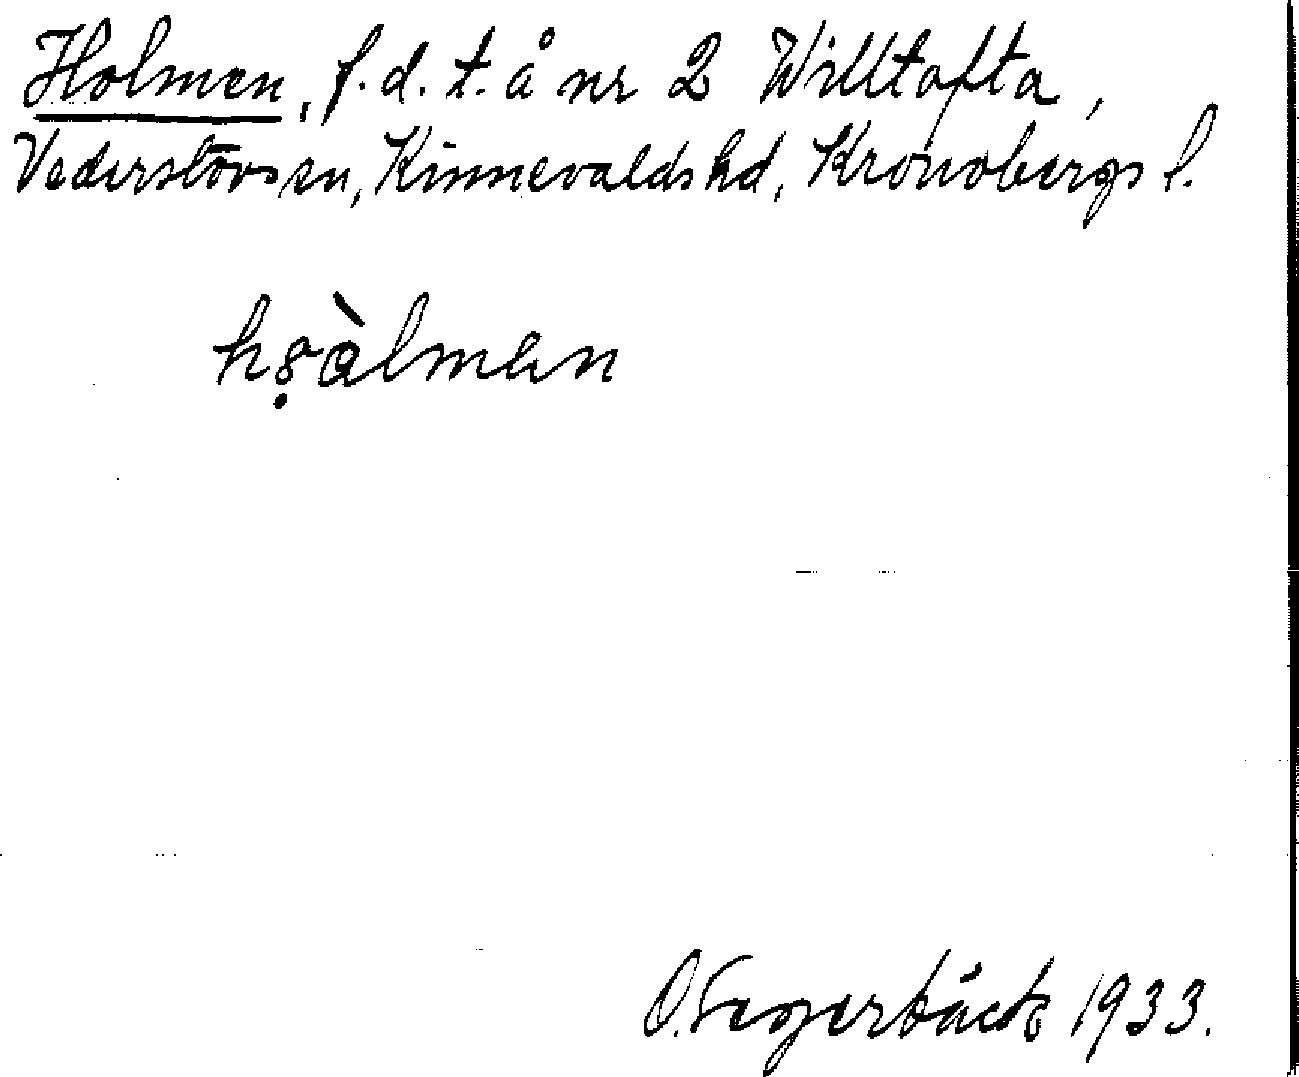 Holmen, f.d.t. å nr 2 Willtofta,
Vederslövs sn, Kinnevalds hd, Kronobergs l.
hꝸ̣àlmen
O. Segerbäck 1933.